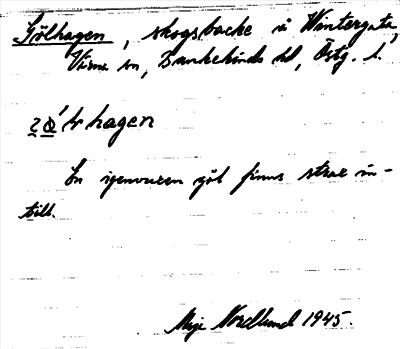 Gölhagen, skogsbacke i Wintergata,
Värna sn, Bankekinds hd, Östg. l.
hagen
En igenvuxen göl finns strax in-
till.
Maja Nordlund 1945.